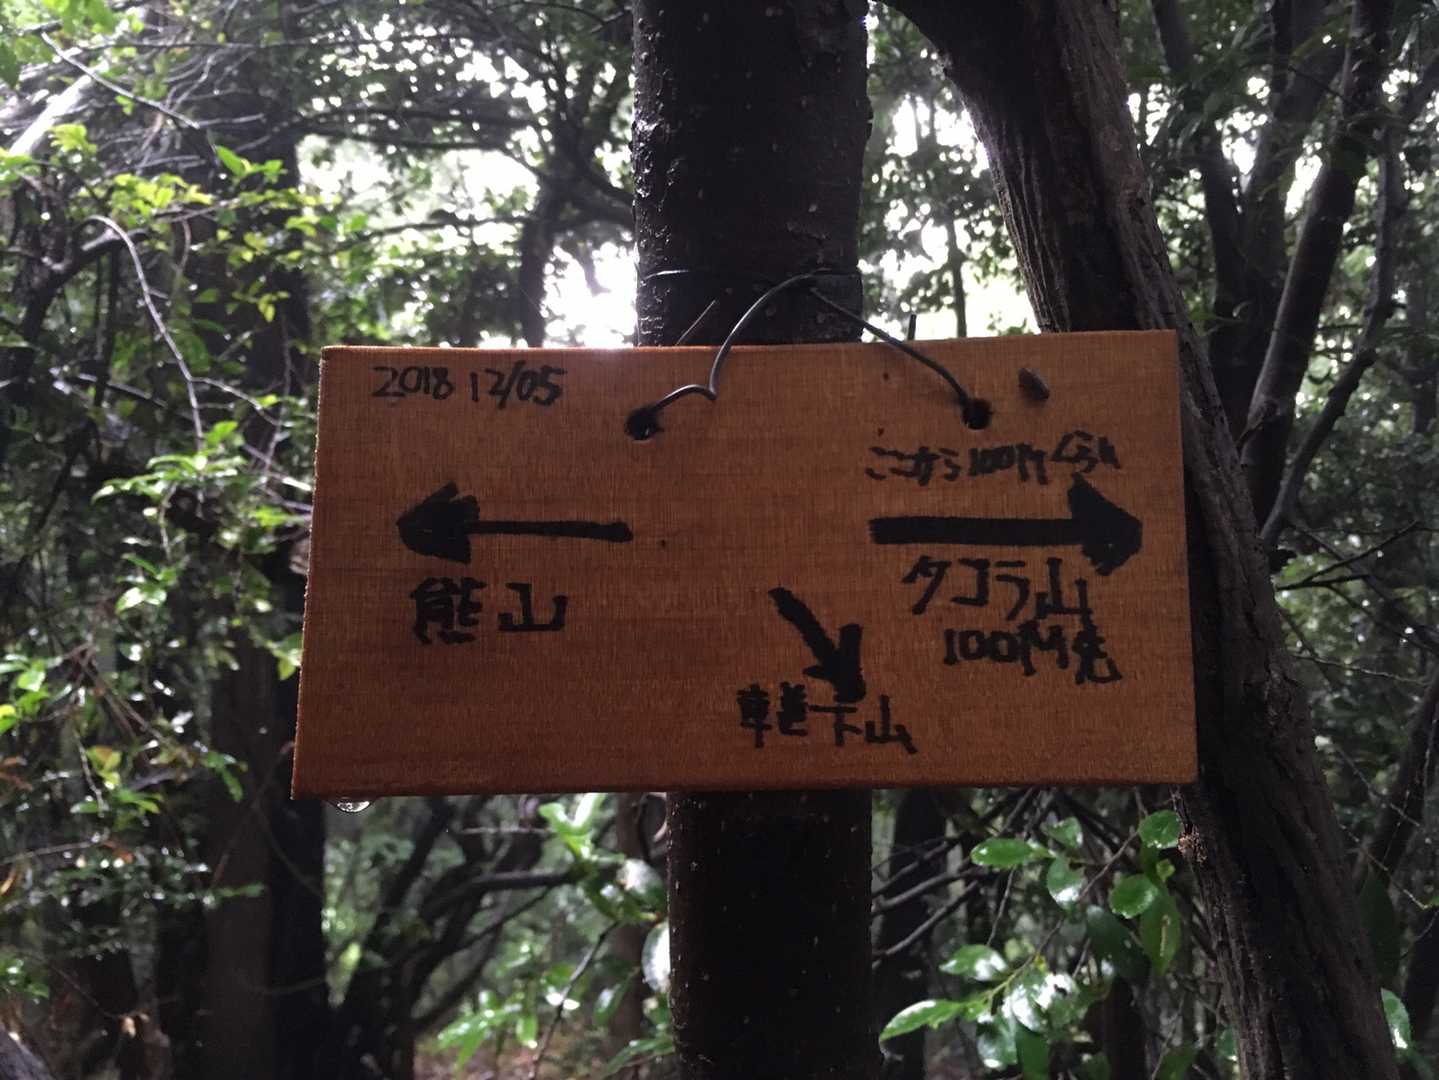 2018 12/05
ここから100M ぐらい
熊山
タコラ山
100M先
車道下山